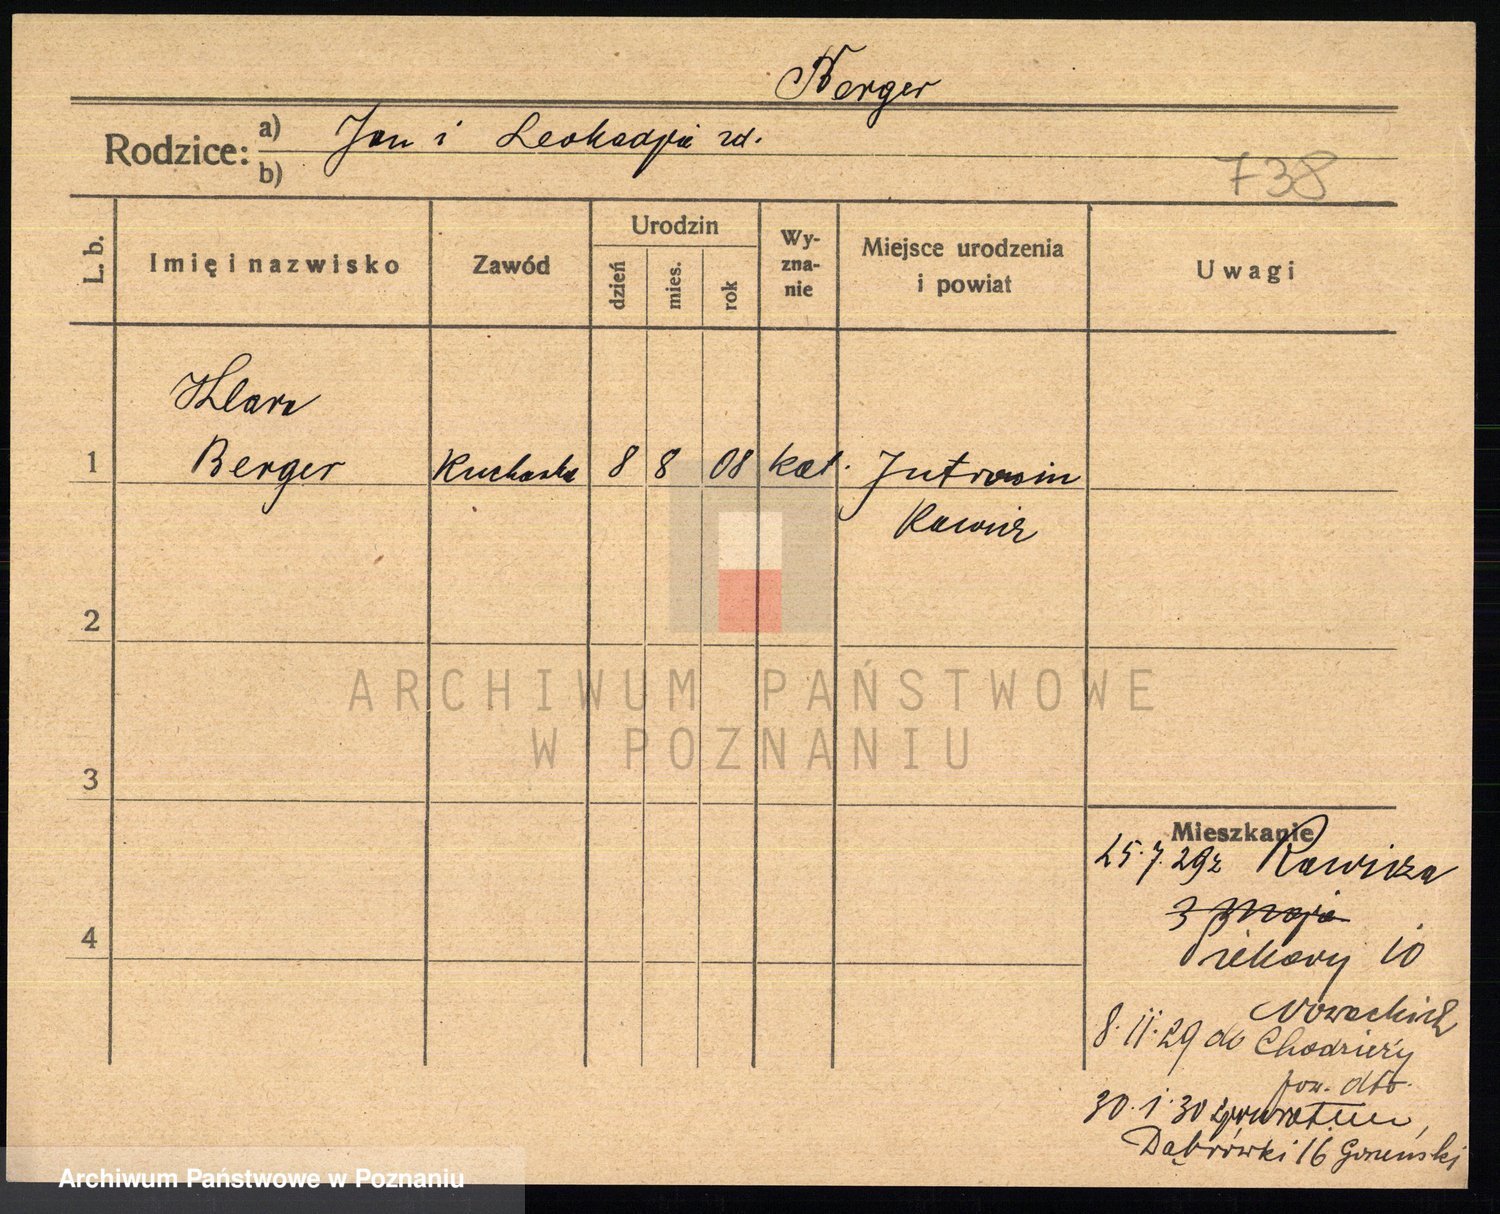 Berger
Rodzice: a) Jan i Leokadja zd.
b)
738
L. b. Imię i nazwisko Zawód Urodzin dzień mies. rok Wy-zna-nie Miejsce urodzenia i powiat Uwagi
Klara
1 Berger Kucharka 8 8 08 kat. Jutrosin
Rawicz
2
ARCHIWUM PAŃSTWOWE
W POZNANIU
3
Mieszkanie
25.7.29 z Rawicza
3 Maja
Piekary 10
Nowackich
8.11.29 do Chodzieży
pow. dto.
30.1.30 z powrotem,
Dąbrówki 16
4
Archiwum Państwowe w Poznaniu